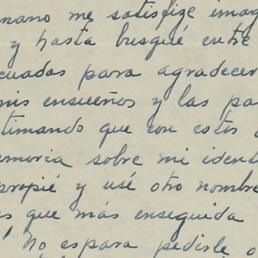 mano me satisfize imag
y hasta busqué entre
cuadas para agradecer
mis ensueños y las pa
timando que con estos
emoria sobre mi iden
propié y usé otro nombre
s que más enseguida
No es para pedirle o